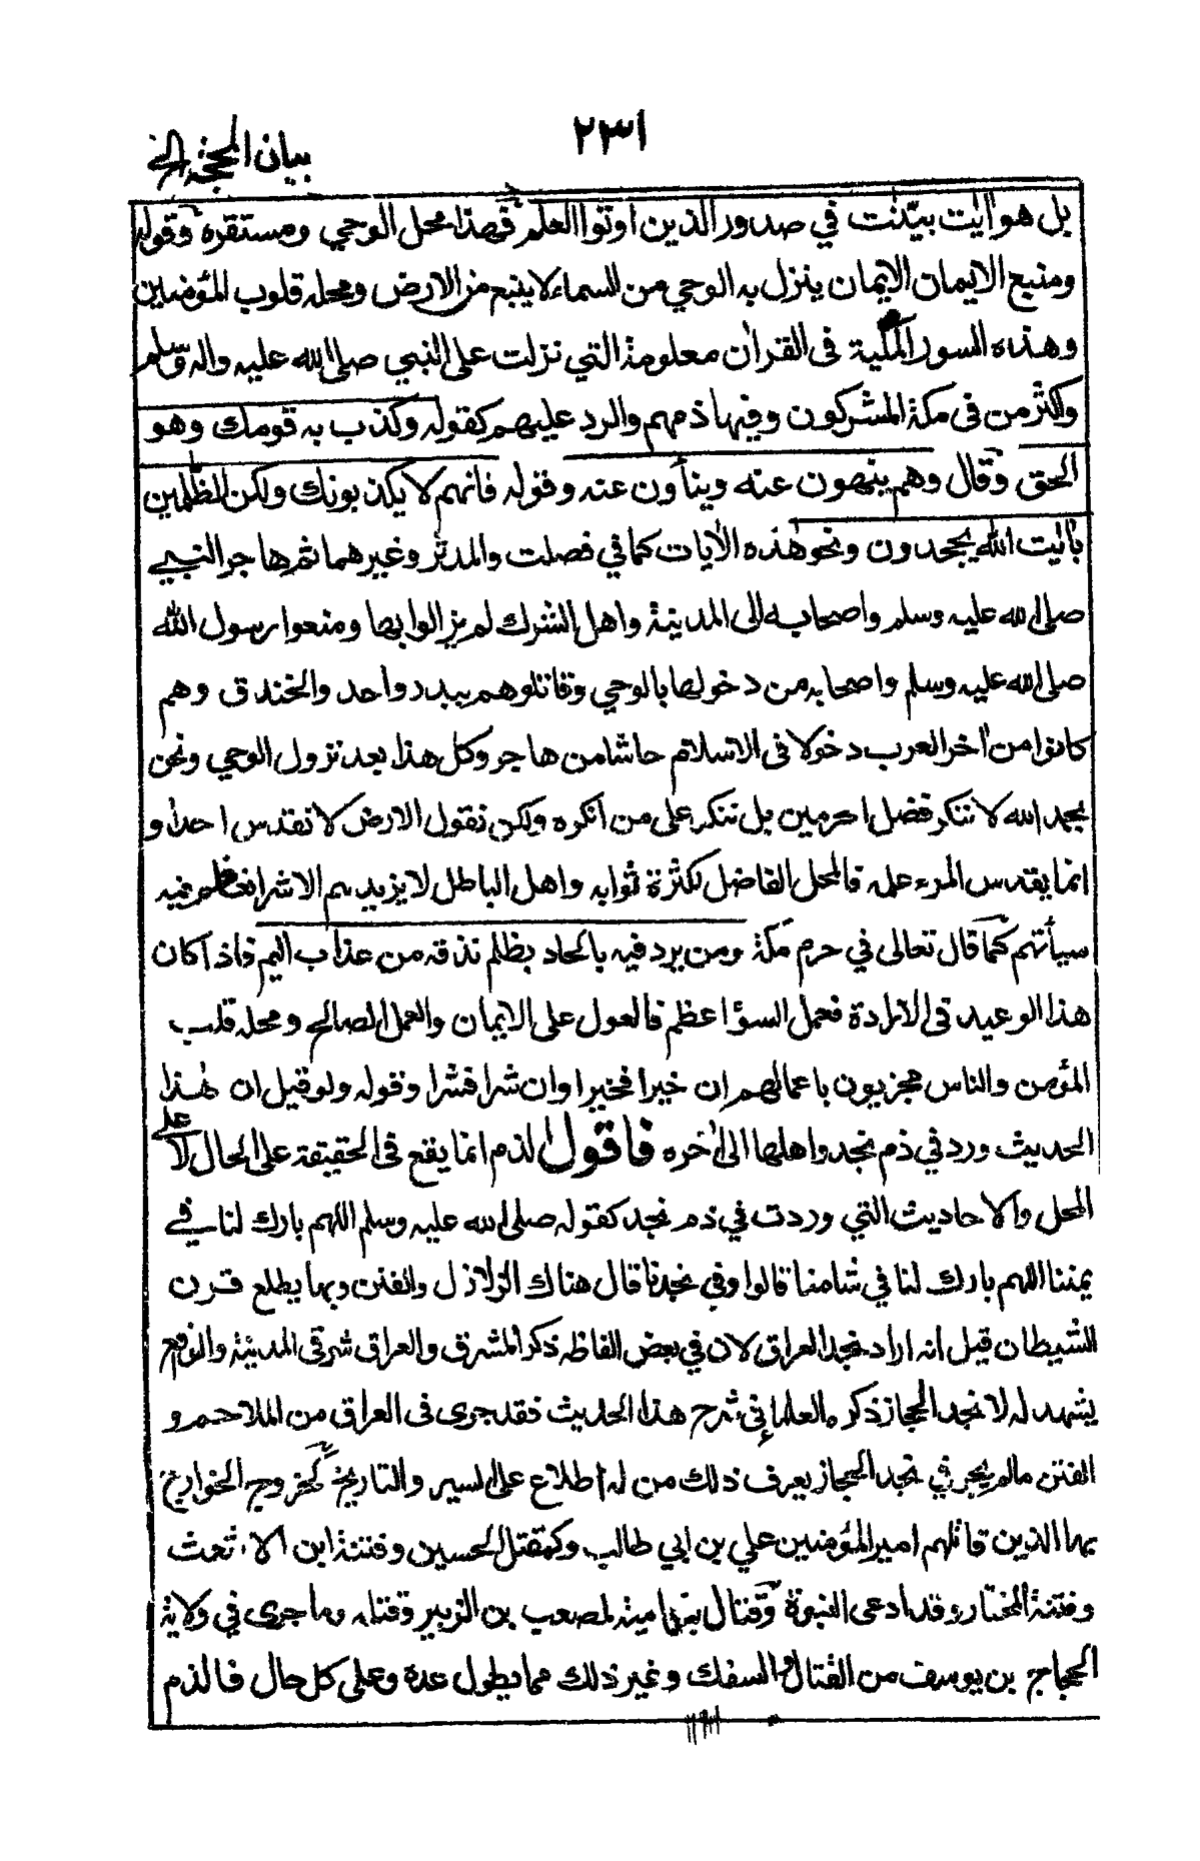 ٢٣١
بيان المحجة الخ
بل هو اٰيٰت بيّنٰت في صدور الذين اوتوا العلم فهذا محل الوحي ومستقره وقوله
ومنبع الايمان الايمان ينزل به الوحي من السماء لا ينبع من الارض ومحله قلوب المؤمنين
وهذه السور المكية فى القران معلومة التي نزلت على النبي صلى الله عليه واله وسلم
واكثر من فى مكة المشركون وفيها ذمهم والرد عليهم كقوله وكذب به قومك وهو
الحق وقال وهم ينهون عنه وينأون عنه وقوله فانهم لا يكذبونك ولكن الظّٰلمين
باٰيٰت الله يجحدون ونحو هٰذه الاٰيات كما في فصلت والمدثر وغيرهما ثم هاجر النبي
صلى الله عليه وسلم واصحابه الى المدينة واهل الشرك لم يزالوا بها ومنعوا رسول الله
صلى الله عليه وسلم واصحابه من دخولها بالوحي وقاتلوهم ببدر واحد والخندق وهم
كانوا من اٰخر العرب دخولا فى الاسلام حاشا من هاجر وكل هذا بعد نزول الوحي ونحن
بحمد الله لا ننكر فضل الحرمين بل ننكر على من انكره ولكن نقول الارض لا تقدس احدا و
انما يقدس المرء عمله فالمحل الفاضل لكثرة ثوابه واهل الباطل لا يزيدهم الا شرا فيه
سيأتهم كما قال تعالى في حرم مكة ومن يرد فيه بالحاد بظلم نذقه من عذاب اليم فاذا كان
هذا الوعيد فى الارادة فعمل السؤ اعظم فالعول على الايمان والعمل الصالح ومحله قلب
المؤمن والناس مجزيون باعمالهم ان خيرا فخيرا وان شرا فشرا وقوله ولو قيل ان هٰذا
الحديث ورد في ذم نجد واهلها الى اٰخره فاقول الذم انما يقع فى الحقيقة على الحال لا على
المحل والاحاديث التي وردت في ذم نجد كقوله صلى الله عليه وسلم اللهم بارك لنا في
يمننا اللهم بارك لنا في شامنا قالوا وفي نجدنا قال هناك الزلازل والفتن وبها يطلع قرن
الشيطان قيل انه اراد نجد العراق لان في بعض الفاظه ذكر المشرق والعراق شرقى المدينة والواقع
يشهد له لا نجد الحجاز ذكره العلماء في شرح هذا الحديث فقد جرى فى العراق من الملاحم و
الفتن مالم يجر في نجد الحجاز يعرف ذلك من له اطلاع على السير والتاريخ كخروج الخوارج
بها الذين قاتلهم امير المؤمنين علي بن ابي طالب وكمقتل الحسين وفتنة ابن الاشعث
وفتنة المختار وقد ادعى النبوة وقتال بني امية لمصعب بن الزبير وقتله وما جرى في ولاية
الحجاج بن يوسف من القتال والسفك وغير ذلك مما يطول عده وعلى كل حال فالذم